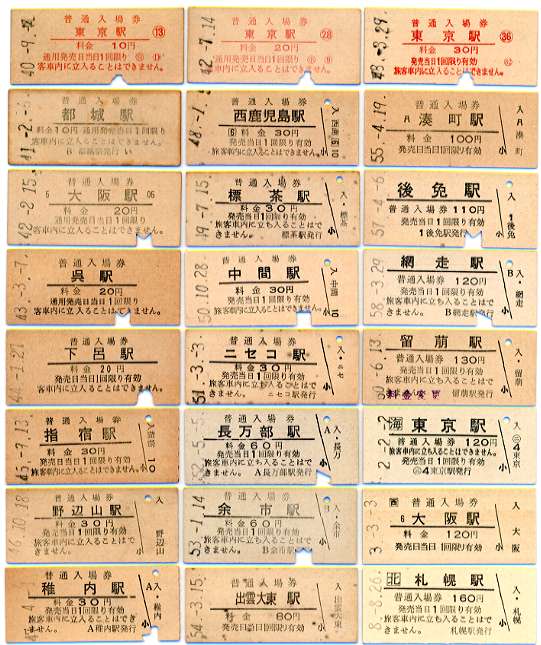 普通入場券
東京駅 ⑬
料金 10円
通用発売日当日1回限り
客車内に立入ることはできません。
普通入場券
東京駅 ㉘
料金 20円
通用発売日当日1回限り
客車内に立入ることはできません。
42.-7.14
普通入場券
東京駅 ㊱
料金 30円
発売当日1回限り有効
旅客車内に立入ることはできません。
普通入場券
都城駅
料金10円 通用発売当日1回限り
客車内に立入ることはできません。
普通入場券
西鹿児島駅
6 料金 30円
発売当日1回限り有効
旅客車内に立入ることはできません。
普通入場券
湊町駅
料金 100円
発売日当日1回限り有効
55.-4.19
普通入場券
大阪駅 05
料金 20円
通用発売日当日1回限り
客車内に立入ることはできません。
普通入場券
標茶駅
料金30円
発売当日1回限り有効
旅客車内に立ち入ることはできません。 標茶駅発行
入・標茶 小
普通入場券
後免駅
普通入場券 110円
発売当日1回限り有効
1後免駅発行
1後免 小
普通入場券
呉駅
料金 20円
通用発売日当日1回限り
客車内に立入ることはできません。
43.-3.-7
普通入場券
中間駅
料金 30円
発売当日1回限り有効
旅客車内に立入ることはできません。
50.10.28
入 中間 小 10
普通入場券
網走駅
料金 120円
発売当日1回限り有効
旅客車内に立ち入ることはできません。 B網走駅発行
58.-3.29
B 入・網走 小
普通入場券
下呂駅
料金 20円
発売日当日1回限り有効
客車内に立入ることはできません。
普通入場券
ニセコ駅
料金30円
発売当日1回限り有効
旅客車内に立ち入ることはできません。 ニセコ駅発行
51.-3.-3
入・ニセ 小
普通入場券
留萠駅
料金 130円
発売当日1回限り有効
旅客車内に立ち入ることはできません。 留萠駅発行
料金変更
入・留萠 小
普通入場券
指宿駅
料金 30円
発売当日1回限り有効
旅客車内に立入ることはできません。
普通入場券
長万部駅
料金 60円
発売当日1回限り有効
旅客車内に立ち入ることはできません。 A長万部駅発行
A 入・長万 小
普通入場券
海 東京駅
料金 120円
発売当日1回限り有効
旅客車内に立ち入ることはできません。
4東京駅発行
4東京 小
普通入場券
野辺山駅
料金 30円
発売当日1回限り有効
旅客車内に立ち入ることはできません。
入 野辺山 小
普通入場券
余市駅
料金 60円
発売当日1回限り有効
旅客車内に立ち入ることはできません。 B余市駅発行
53.-1.14
B 入・余市 小
普通入場券
西 6 大阪駅
料金 120円
発売当日1回限り有効
旅客車内に立ち入ることはできません。
3.-3.-3
入 大阪 小
普通入場券
稚内駅
料金30円
発売当日1回限り有効
旅客車内に立ち入ることはできません。 A稚内駅発行
A 入・稚内 小
普通入場券
出雲大東駅
料金 80円
発売当日1回限り有効
旅客車内に立ち入ることはできません。
54.-3.15
入・出雲大東 小
普通入場券
北 札幌駅
料金 160円
発売当日1回限り有効
旅客車内に立ち入ることはできません。 札幌駅発行
8.-8.26
入・札幌 小